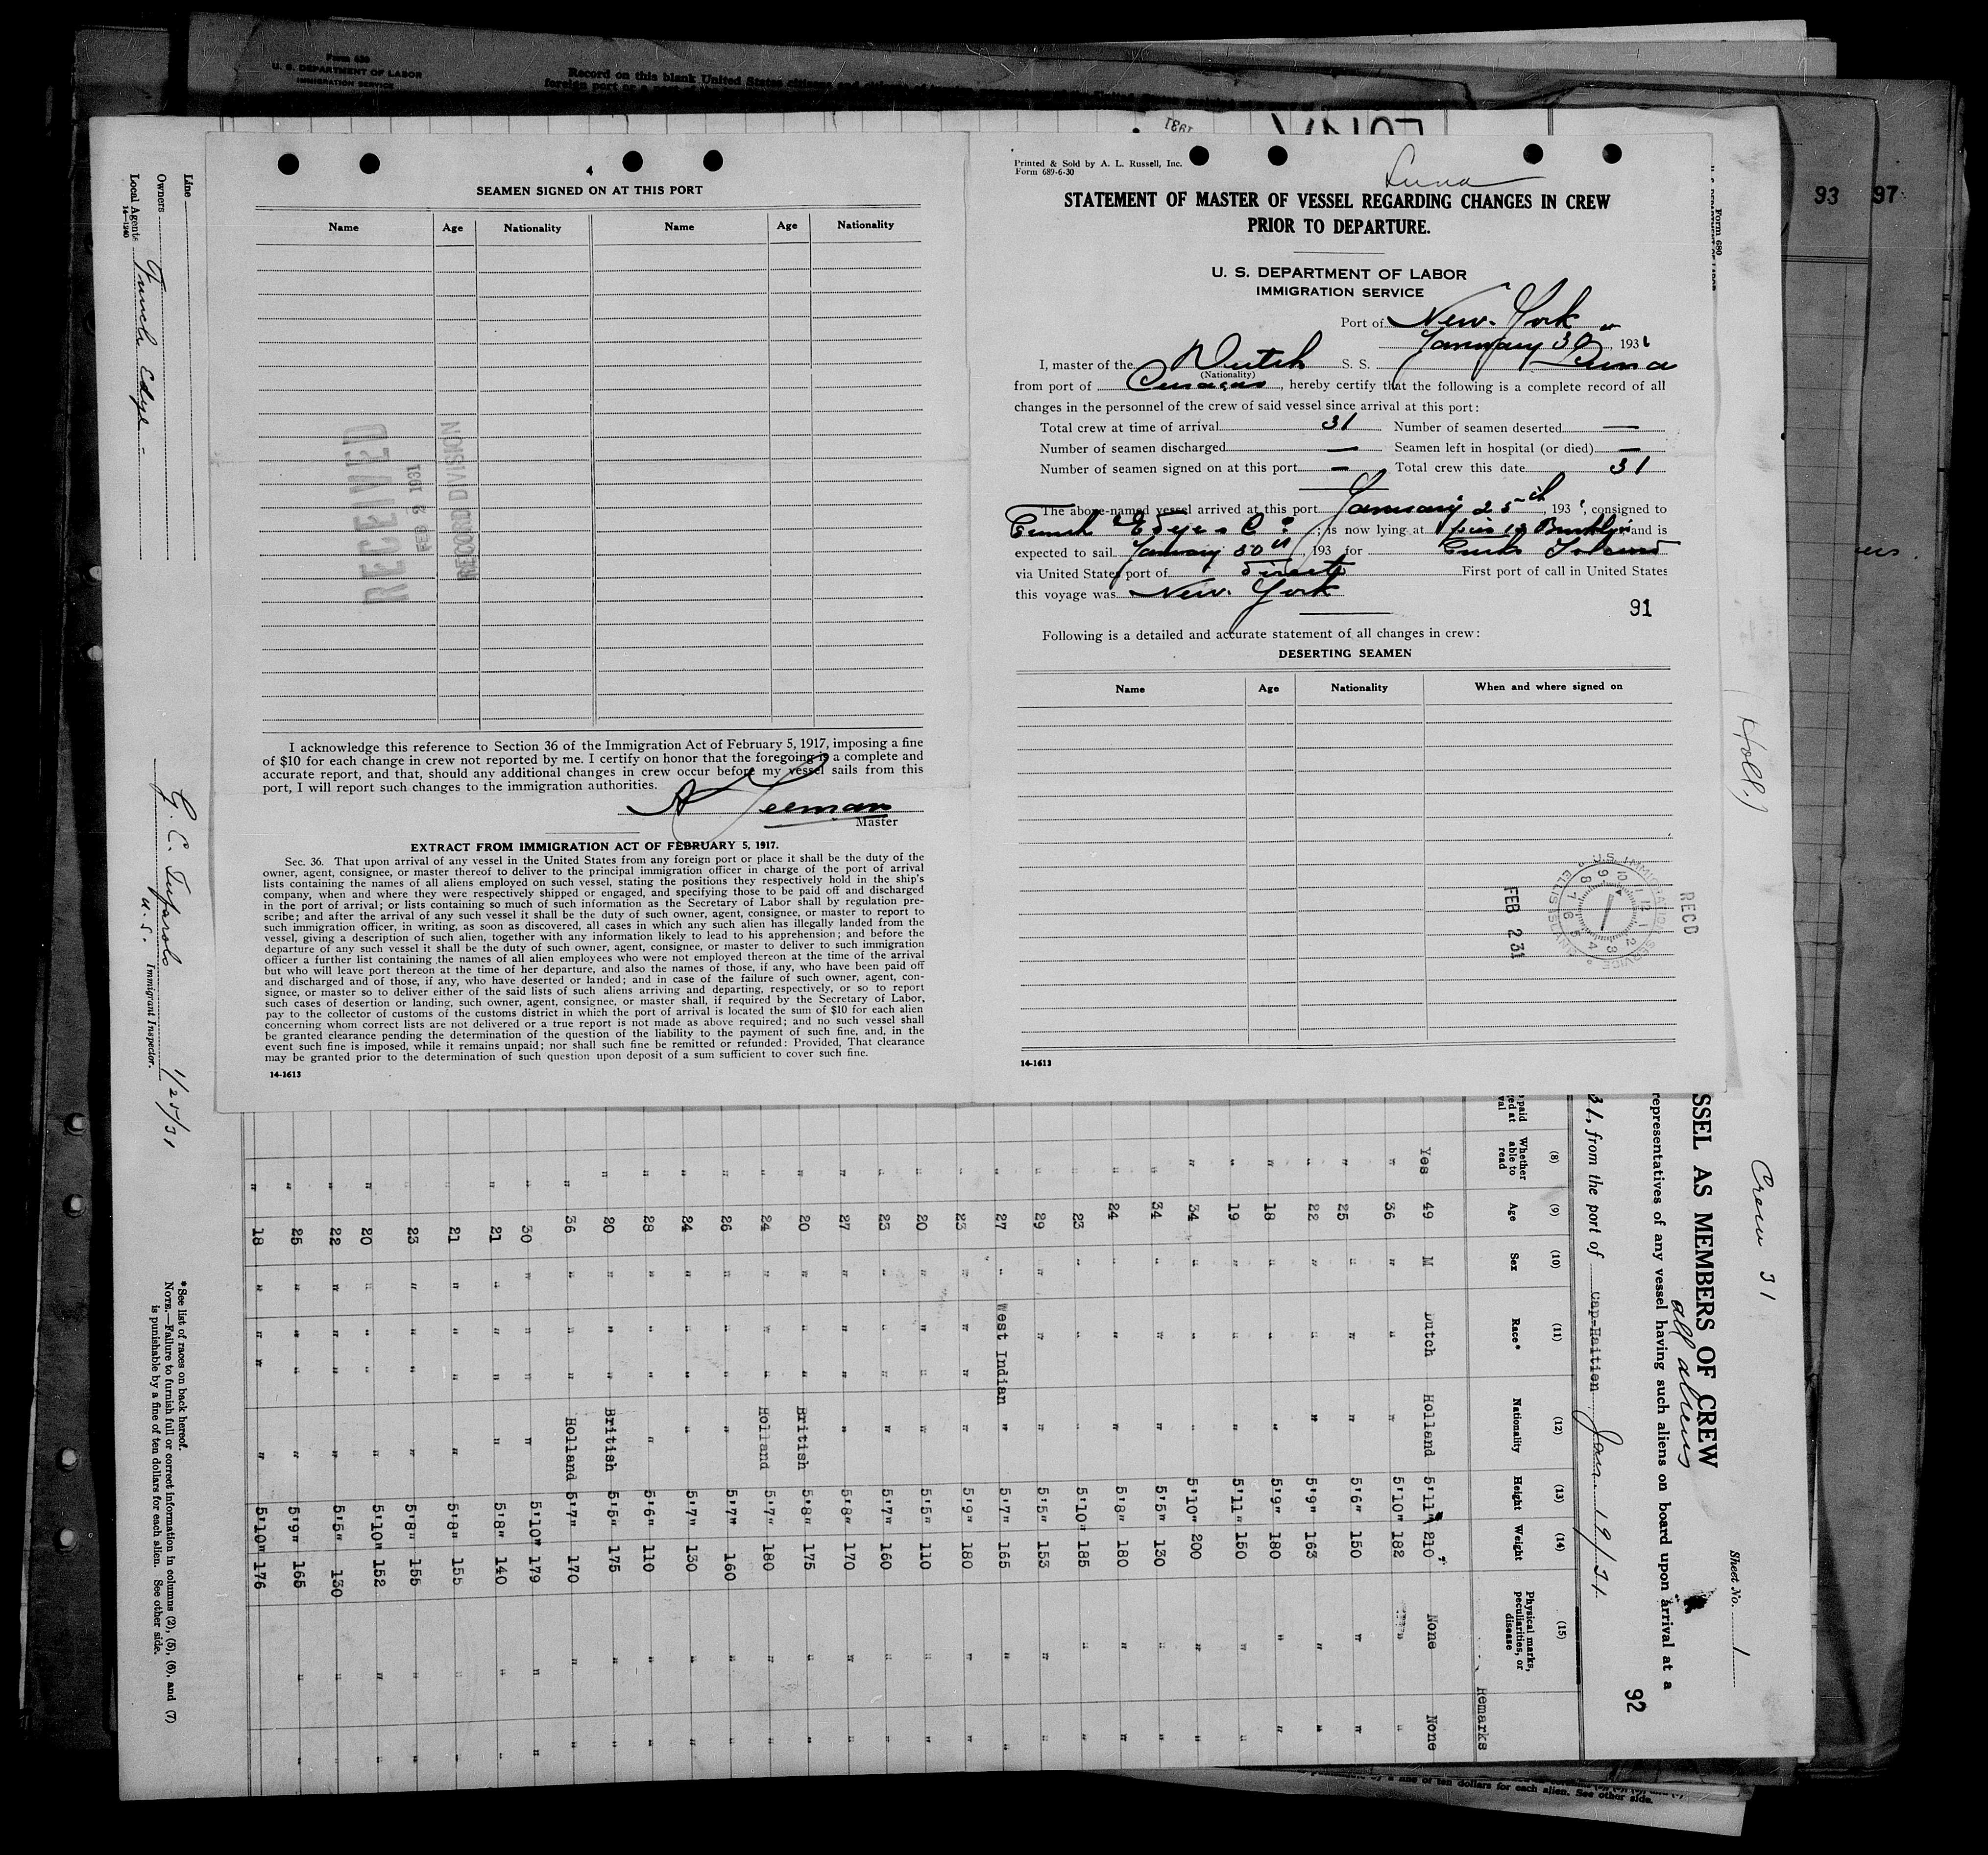 Form 680
U. S. DEPARTMENT OF LABOR
IMMIGRATION SERVICE
Record on this blank United States citizens
93 97
4
SEAMEN SIGNED ON AT THIS PORT
Name Age Nationality Name Age Nationality
RECEIVED
FEB 2 1931
RECORD DIVISION
I acknowledge this reference to Section 36 of the Immigration Act of February 5, 1917, imposing a fine
of $10 for each change in crew not reported by me. I certify on honor that the foregoing is a complete and
accurate report, and that, should any additional changes in crew occur before my vessel sails from this
port, I will report such changes to the immigration authorities.
Master
EXTRACT FROM IMMIGRATION ACT OF FEBRUARY 5, 1917.
Sec. 36. That upon arrival of any vessel in the United States from any foreign port or place it shall be the duty of the
owner, agent, consignee, or master thereof to deliver to the principal immigration officer in charge of the port of arrival
lists containing the names of all aliens employed on such vessel, stating the positions they respectively hold in the ship's
company, when and where they were respectively shipped or engaged, and specifying those to be paid off and discharged
in the port of arrival; or lists containing so much of such information as the Secretary of Labor shall by regulation pre-
scribe; and after the arrival of any such vessel it shall be the duty of such owner, agent, consignee, or master to report to
such immigration officer, in writing, as soon as discovered, all cases in which any such alien has illegally landed from the
vessel, giving a description of such alien, together with any information likely to lead to his apprehension; and before the
departure of any such vessel it shall be the duty of such owner, agent, consignee, or master to deliver to such immigration
officer a further list containing the names of all alien employees who were not employed thereon at the time of the arrival
but who will leave port thereon at the time of her departure, and also the names of those, if any, who have been paid off
and discharged and of those, if any, who have deserted or landed; and in case of the failure of such owner, agent, con-
signee, or master so to deliver either of the said lists of such aliens arriving and departing, respectively, or so to report
such cases of desertion or landing, such owner, agent, consignee, or master shall, if required by the Secretary of Labor,
pay to the collector of customs of the customs district in which the port of arrival is located the sum of $10 for each alien
concerning whom correct lists are not delivered or a true report is not made as above required; and no such vessel shall
be granted clearance pending the determination of the question of the liability to the payment of such fine, and, in the
event such fine is imposed, while it remains unpaid; nor shall such fine be remitted or refunded: Provided, That clearance
may be granted prior to the determination of such question upon deposit of a sum sufficient to cover such fine.
14-1613
Printed & Sold by A. L. Russell, Inc.
Form 689-6-30
Luna
STATEMENT OF MASTER OF VESSEL REGARDING CHANGES IN CREW
PRIOR TO DEPARTURE.
U. S. DEPARTMENT OF LABOR
IMMIGRATION SERVICE
Port of New-York
January 30, 1931
I, master of the Dutch S. S. Luna
(Nationality)
from port of Curaçao, hereby certify that the following is a complete record of all
changes in the personnel of the crew of said vessel since arrival at this port:
Total crew at time of arrival 31 Number of seamen deserted —
Number of seamen discharged — Seamen left in hospital (or died) —
Number of seamen signed on at this port — Total crew this date 31
The above-named vessel arrived at this port January 25th, 1931, consigned to
Funch Edye & Co; is now lying at pier 19 Brooklyn and is
expected to sail January 30th, 193 for Turks Island
via United States port of direct First port of call in United States
this voyage was New-York
91
Following is a detailed and accurate statement of all changes in crew:
DESERTING SEAMEN
Name Age Nationality When and where signed on
RECD
U.S. IMMIGRATION SERVICE ELLIS ISLAND
FEB 2 31
14-1613
Line
Owners
Local Agents Funch Edye -
14-1240
U. S. Immigrant Inspector.
1/25/31
*See list of races on back hereof.
NOTE.—Failure to furnish full or correct information in columns (2), (5), (6), and (7)
is punishable by a fine of ten dollars for each alien. See other side.
Form 680
(Holl.)
Crew 31
Sheet No. 1
SSEL AS MEMBERS OF CREW
all aliens
representatives of any vessel having such aliens on board upon arrival at a
31, from the port of Cap-Haitien Jan. 19/31
92
(8) (9) (10) (11) (12) (13) (14) (15)
Whether able to read Age Sex Race* Nationality Height Weight Physical marks, peculiarities, or disease Remarks
Yes 49 M Dutch Holland 5'11" 210 None None
" 36 " " " 5'10" 182 " "
" 25 " " " 5'6" 150 " "
" 22 " " " 5'9" 163 " "
" 18 " " " 5'9" 180 " "
" 19 " " " 5'11" 150 " "
" 34 " " " 5'10" 200 " "
" 34 " " " 5'5" 130 " "
" 24 " " " 5'8" 180 " "
" 23 " " " 5'10" 185 " "
" 29 " " " 5'5" 153 " "
" 27 " West Indian " 5'7" 165 " "
" 23 " " " " 5'9" 180 " "
" 20 " " " " 5'5" 110 " "
" 23 " " " " 5'7" 160 " "
" 27 " " " " 5'8" 170 " "
" 20 " " " British 5'8" 175 " "
" 24 " " " Holland 5'7" 180 " "
" 26 " " " " 5'7" 160 " "
" 24 " " " " 5'7" 130 " "
" 28 " " " " 5'6" 110 " "
" 20 " " " British 5'5" 175 " "
" 36 " " " Holland 5'7" 170 " "
" 30 " " " " 5'10" 179 " "
" 21 " " " " 5'8" 140 " "
" 21 " " " " 5'8" 155 " "
" 23 " " " " 5'8" 155 " "
" 20 " " " " 5'10" 152 " "
" 22 " " " " 5'5" 130 " "
" 25 " " " " 5'9" 165 " "
" 18 " " " " 5'10" 176
of ten dollars for each alien. See other side.